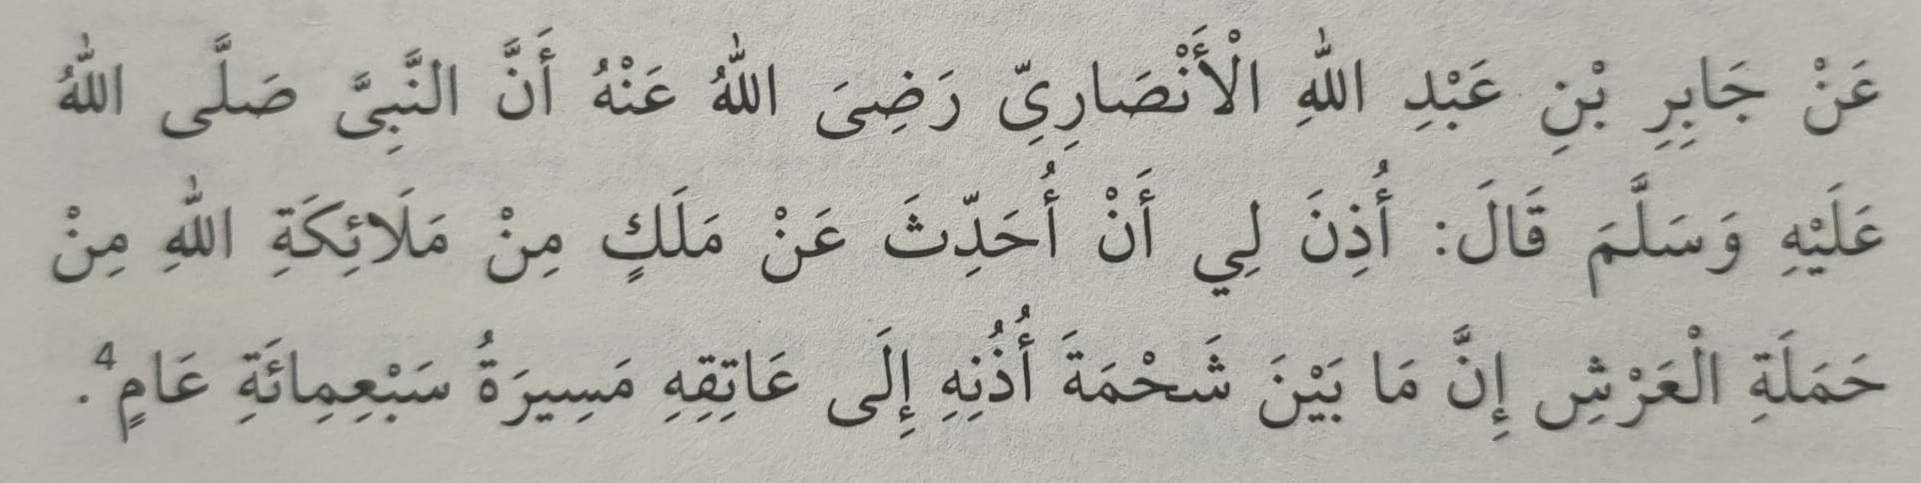 عَنْ جَابِرِ بْنِ عَبْدِ اللهِ الْأَنْصَارِيِّ رَضِىَ اللهُ عَنْهُ أَنَّ النَّبِىَّ صَلَّى اللهُ
عَلَيْهِ وَسَلَّمَ قَالَ: أُذِنَ لِي أَنْ أُحَدِّثَ عَنْ مَلَكٍ مِنْ مَلَائِكَةِ اللهِ مِنْ
حَمَلَةِ الْعَرْشِ إِنَّ مَا بَيْنَ شَحْمَةَ أُذُنِهِ إِلَى عَاتِقِهِ مَسِيرَةُ سَبْعِمِائَةِ عَامٍ4.